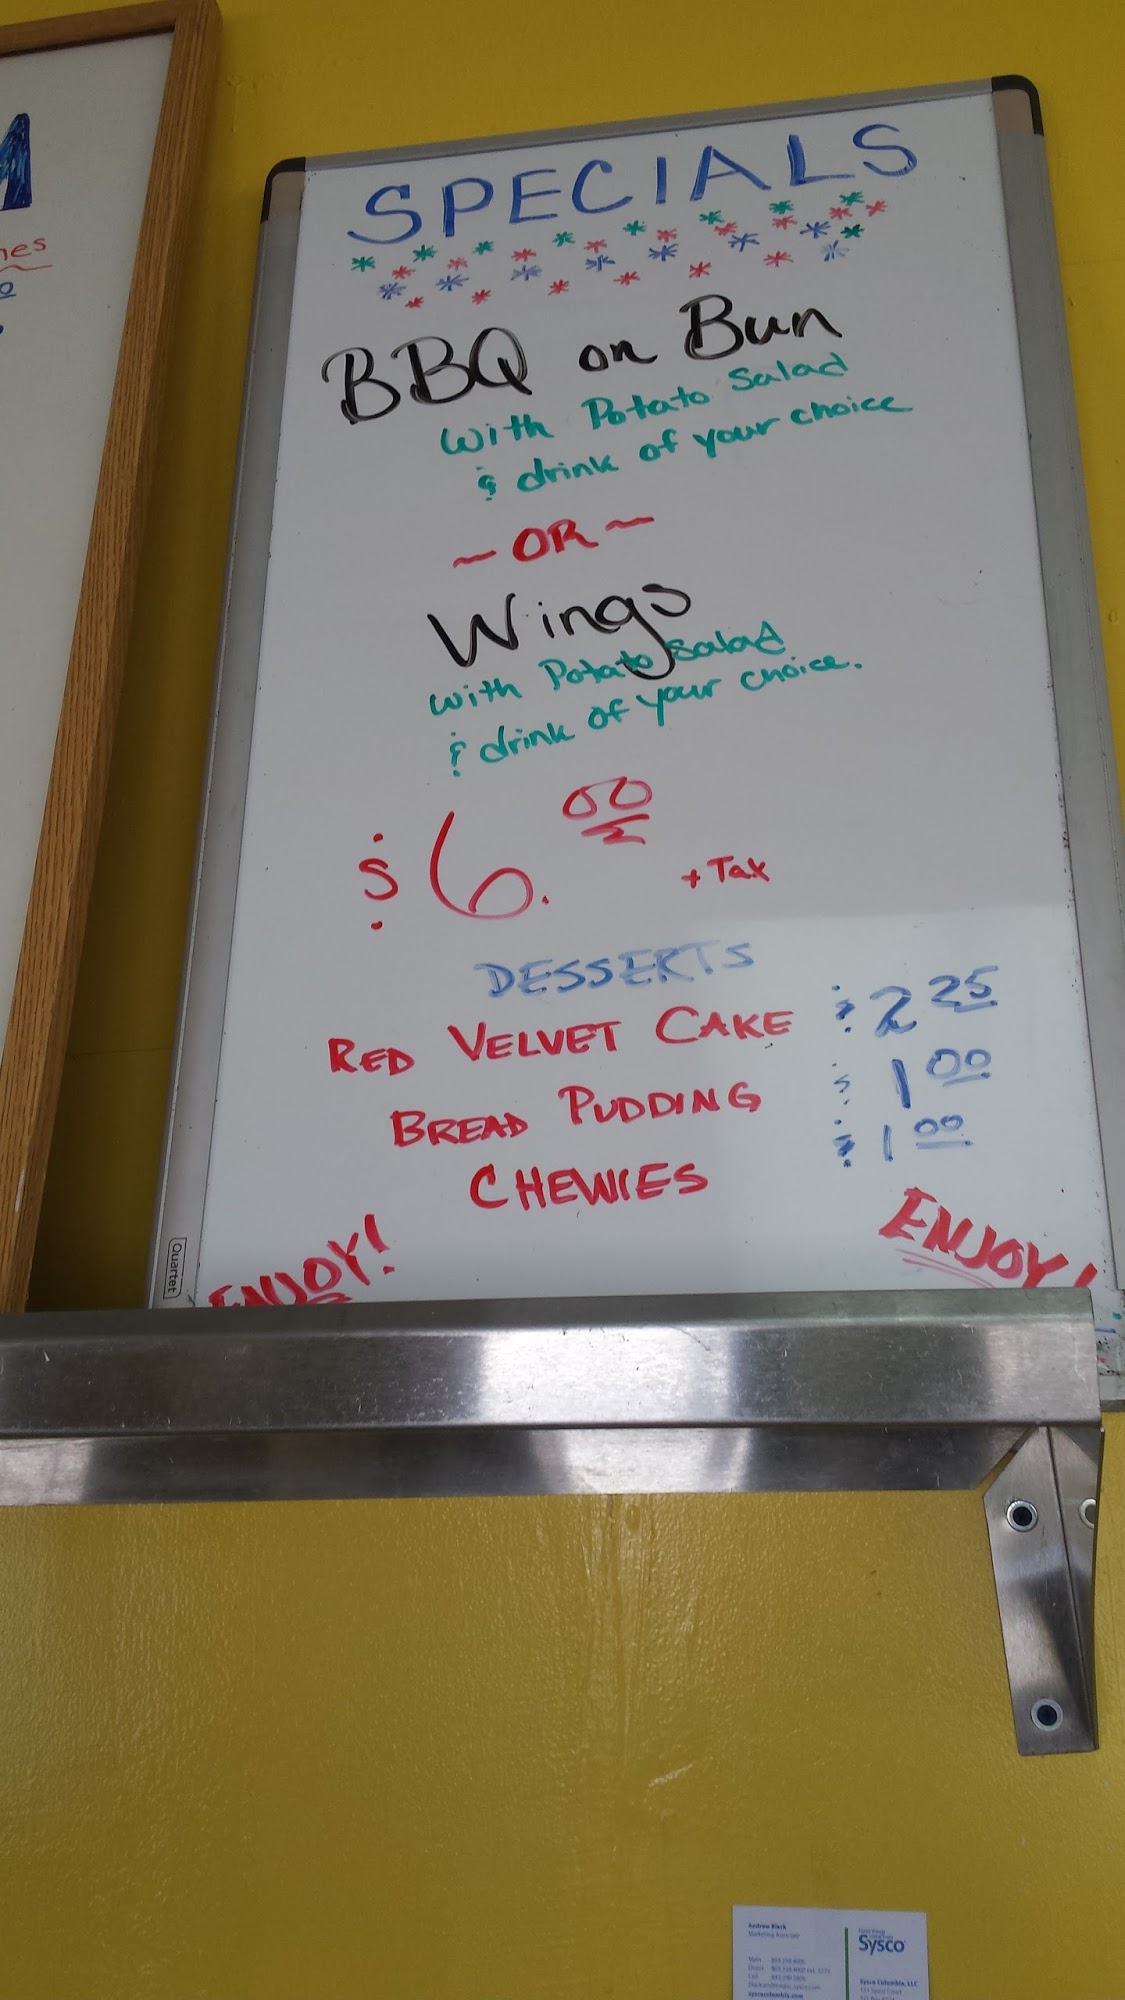 SPECIALS
BBQ on Bun
with Potato Salad
& drink of your choice
~ OR ~
Wings
with Potato Salad
& drink of your choice.
$6.00
+ Tax
DESSERTS
RED VELVET CAKE $2 25
BREAD PUDDING $1 00
CHEWIES $1 00
ENJOY!
ENJOY!
Quartet
Andrew Black
Marketing Associate
Sysco
Main
Direct
Cell
Sysco Columbia, LLC